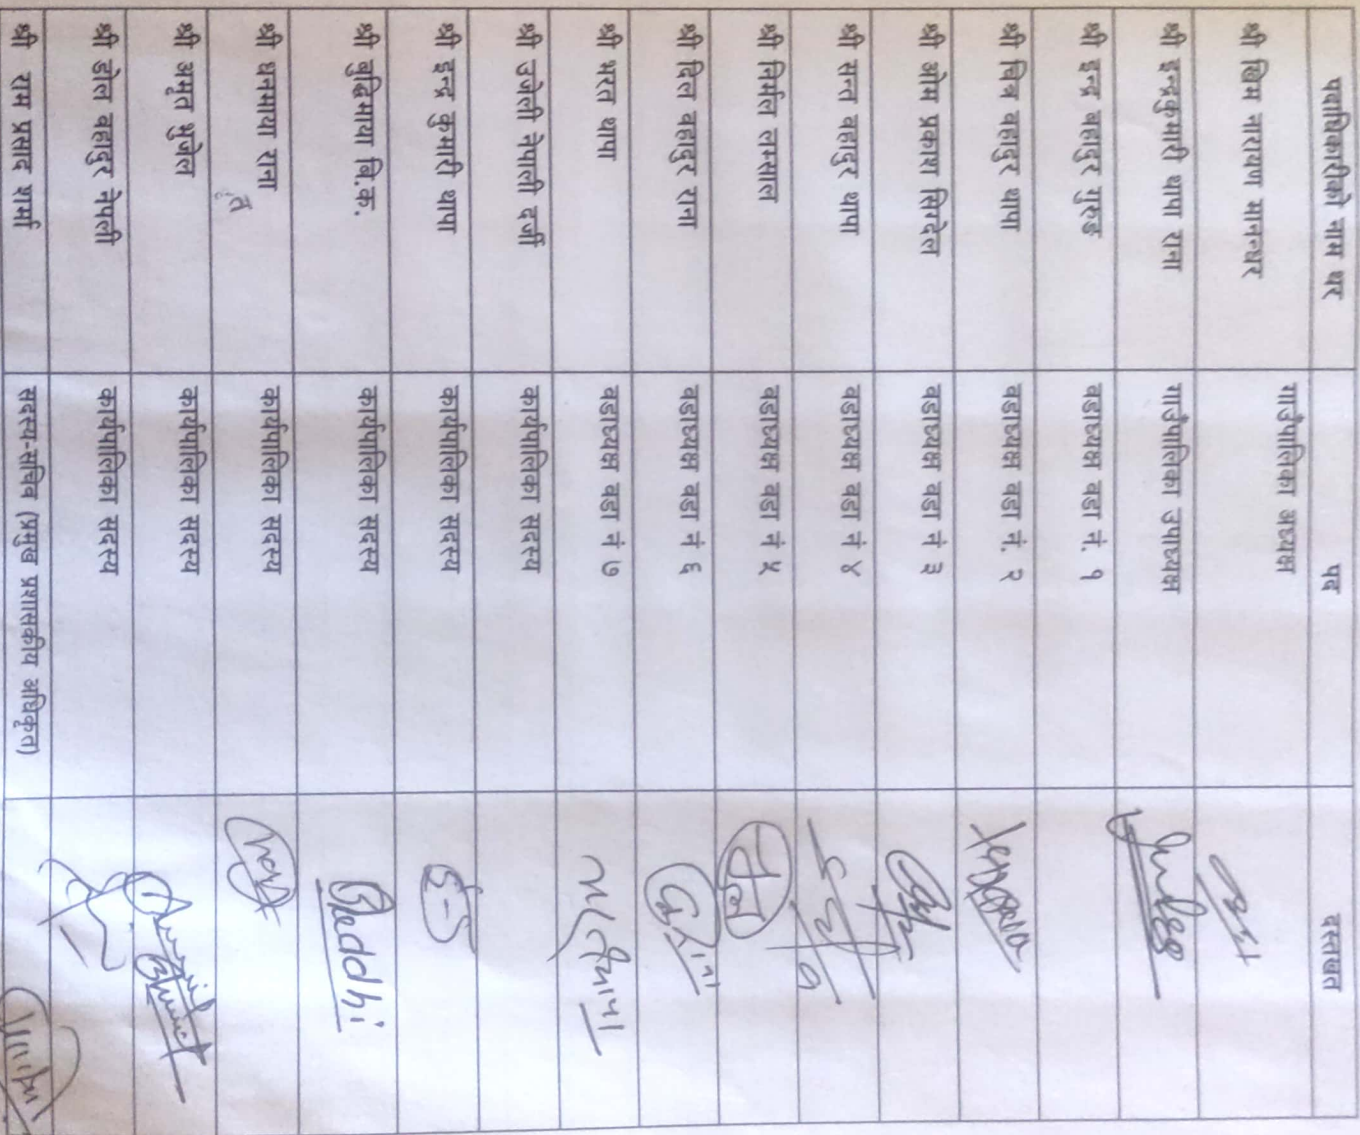 पदाधिकारीको नाम थर पद दस्तखत
श्री खिम नारायण मानन्धर गाउँपालिका अध्यक्ष
श्री इन्द्रकुमारी थापा राना गाउँपालिका उपाध्यक्ष
श्री इन्द्र बहादुर गुरुङ वडाध्यक्ष वडा नं. १
श्री चित्र बहादुर थापा वडाध्यक्ष वडा नं. २
श्री ओम प्रकाश सिग्देल वडाध्यक्ष वडा नं ३
श्री सन्त बहादुर थापा वडाध्यक्ष वडा नं ४
श्री निर्मल लम्साल वडाध्यक्ष वडा नं ५
श्री दिल बहादुर राना वडाध्यक्ष वडा नं ६
श्री भरत थापा वडाध्यक्ष वडा नं ७
श्री उजेली नेपाली दर्जी कार्यपालिका सदस्य
श्री इन्द्र कुमारी थापा कार्यपालिका सदस्य
श्री बुद्धिमाया बि.क. कार्यपालिका सदस्य Buddhi
श्री धनमाया राना कार्यपालिका सदस्य
श्री अमृत भुजेल कार्यपालिका सदस्य
श्री डोल बहादुर नेपाली कार्यपालिका सदस्य
श्री राम प्रसाद शर्मा सदस्य-सचिव (प्रमुख प्रशासकीय अधिकृत)